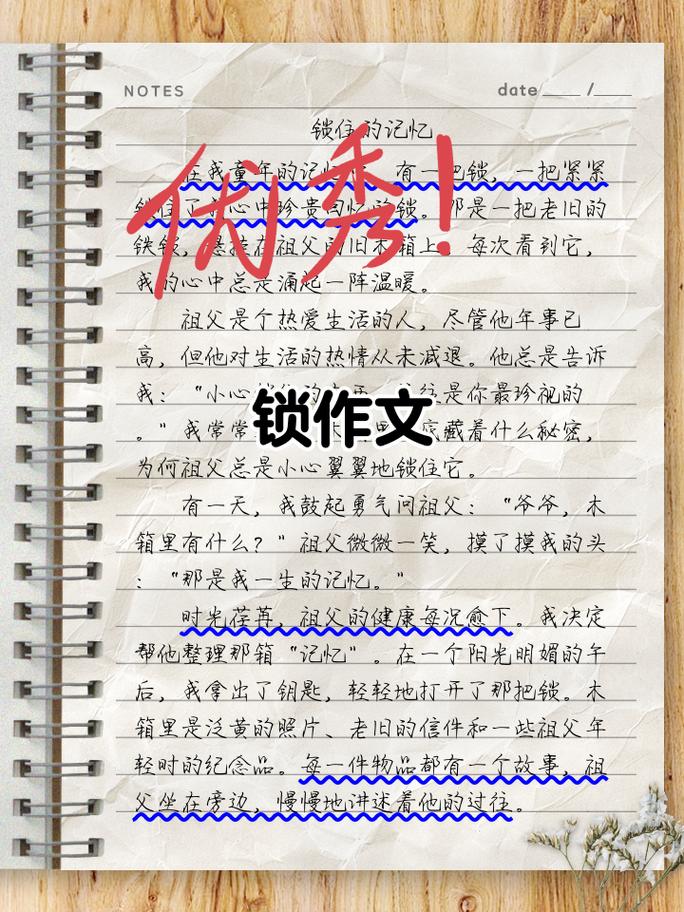 NOTES
date ____ /____
锁住的记忆
在我童年的记忆 有一把锁，一把紧紧
锁住了我心中珍贵回忆的锁。那是一把老旧的
铁锁，悬挂在祖父的旧木箱上。每次看到它，
我的心中总是涌起一阵温暖。
优秀！
祖父是个热爱生活的人，尽管他年事已
高，但他对生活的热情从未减退。他总是告诉
我：“小心 是你最珍视的
锁作文
。”我常常 藏着什么秘密，
为何祖父总是小心翼翼地锁住它。
有一天，我鼓起勇气问祖父：“爷爷，木
箱里有什么？”祖父微微一笑，摸了摸我的头
：“那是我一生的记忆。”
时光荏苒，祖父的健康每况愈下。我决定
帮他整理那箱“记忆”。在一个阳光明媚的午
后，我拿出了钥匙，轻轻地打开了那把锁。木
箱里是泛黄的照片、老旧的信件和一些祖父年
轻时的纪念品。每一件物品都有一个故事，祖
父坐在旁边，慢慢地讲述着他的过往。